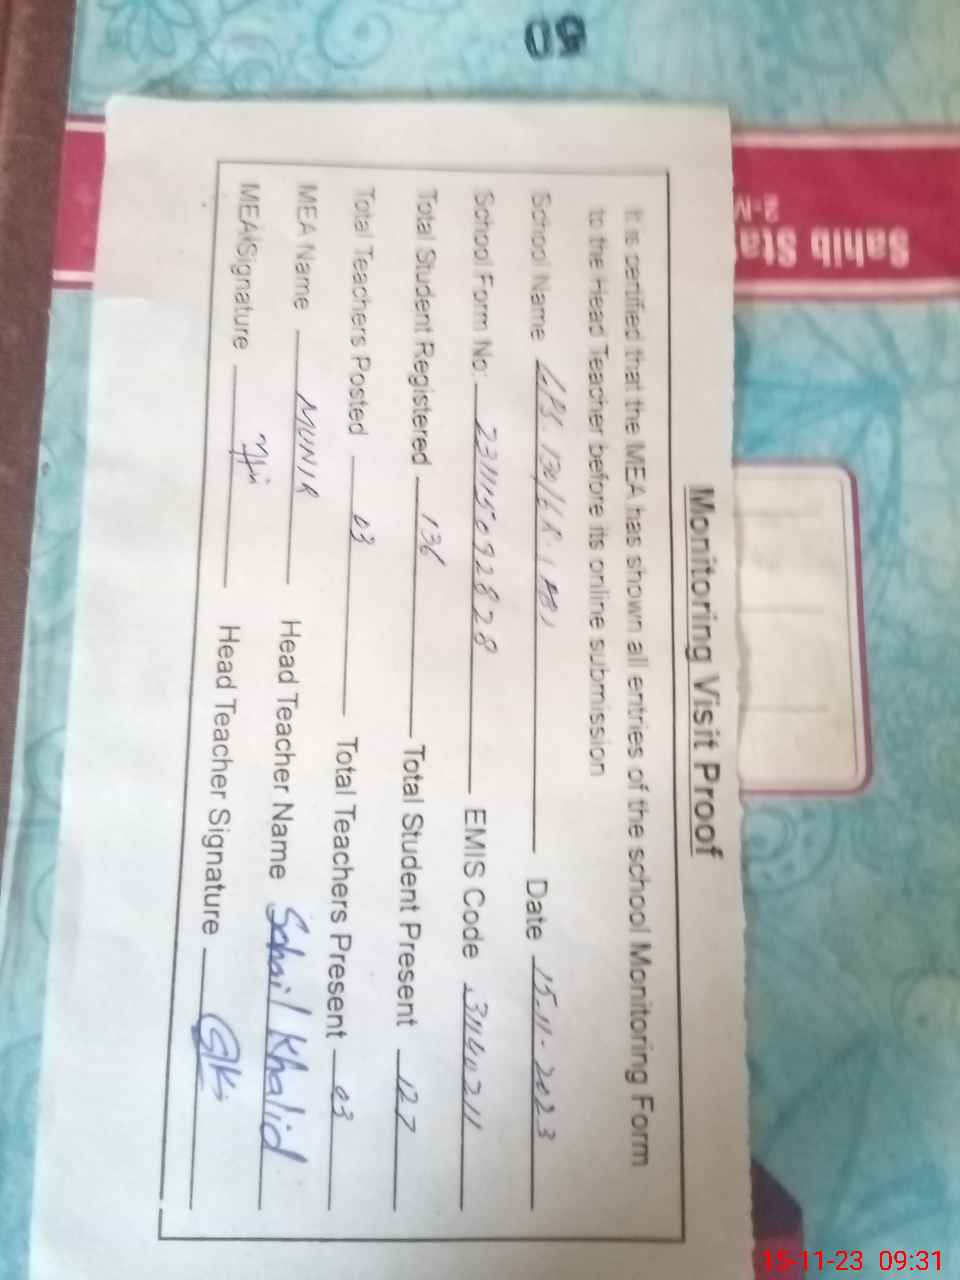 50
Sahib Sta
2-M
Monitoring Visit Proof
It is certified that the MEA has shown all entries of the school Monitoring Form
to the Head Teacher before its online submission
School Name GPS 130/6.R Date 15-11-2023
School Form No: 23111509 2828 EMIS Code 31140211
Total Student Registered 136 Total Student Present 127
Total Teachers Posted 03 Total Teachers Present 03
MEA Name MUNIR Head Teacher Name Sohail Khalid
MEA Signature Head Teacher Signature
15-11-23 09:31